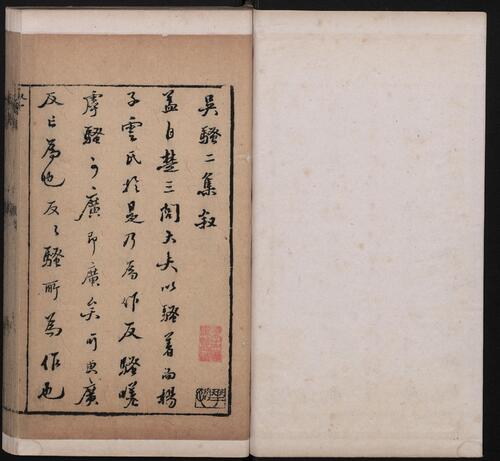 吳騷二集敘
蓋自楚三閭大夫以騷著而楊
子雲氏於是乃為作反騷嗟
虖騷可廣即廣矣所典廣
反已為也反之騷所為作也